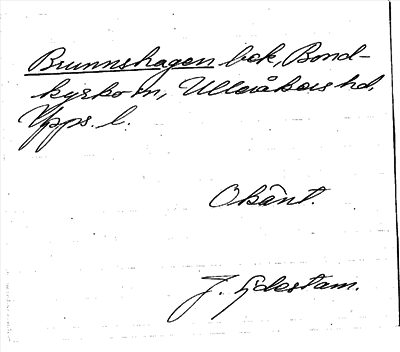 Brunnshagen bek, Bond-
kyrko sn, Ulleråkers hd,
Upps. l.
Okänt.
J. Sjdestam.